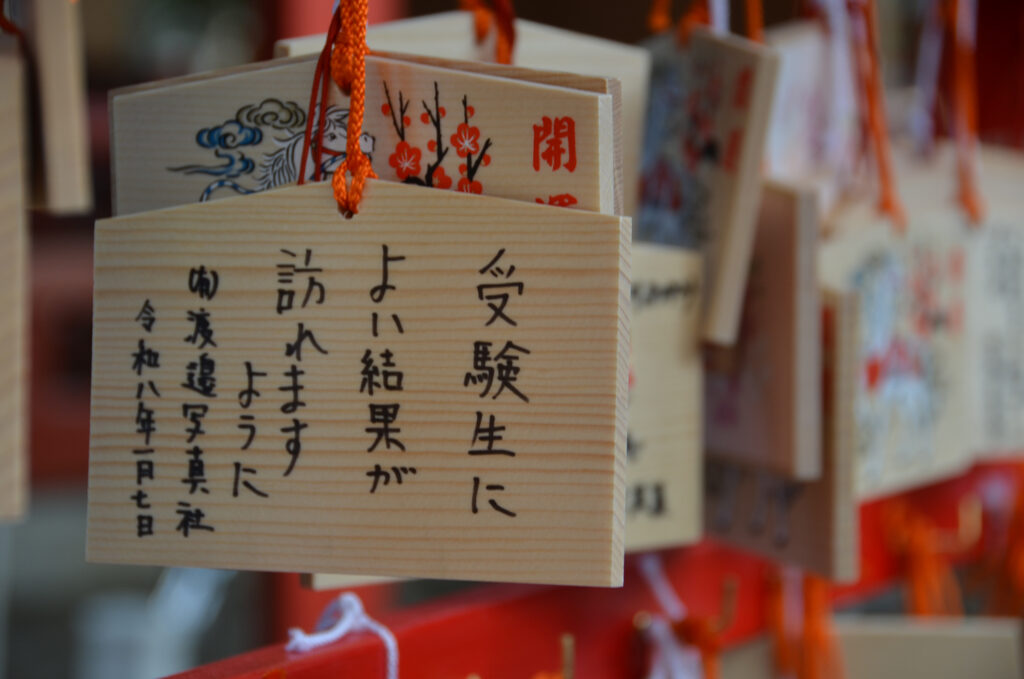 受験生に
よい結果が
訪れます
ように
㈲渡邉写真社
令和八年一月七日
開